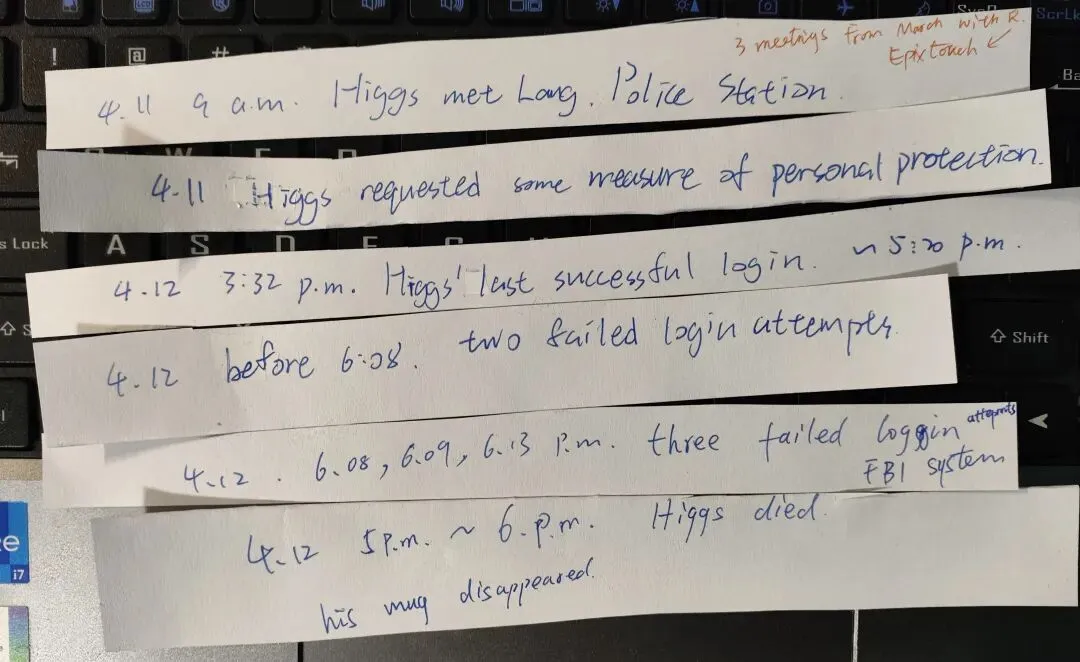 3 meetings from March with R.
Epixtouch ↙
4.11 9 a.m. Higgs met Lang. Police Station.
4.11 Higgs requested some measure of personal protection.
4.12 3:32 p.m. Higgs' last successful login. ~ 5:20 p.m.
4.12 before 6:08. two failed login attempts.
4.12. 6.08, 6.09, 6.13 P.m. three failed loggin attempts
FBI system
4.12 5 P.m. ~ 6.p.m. Higgs died.
his mug disappeared.
! @ #
s Lock A S D F
⇧ Shift
ScrLk
Ba
i7